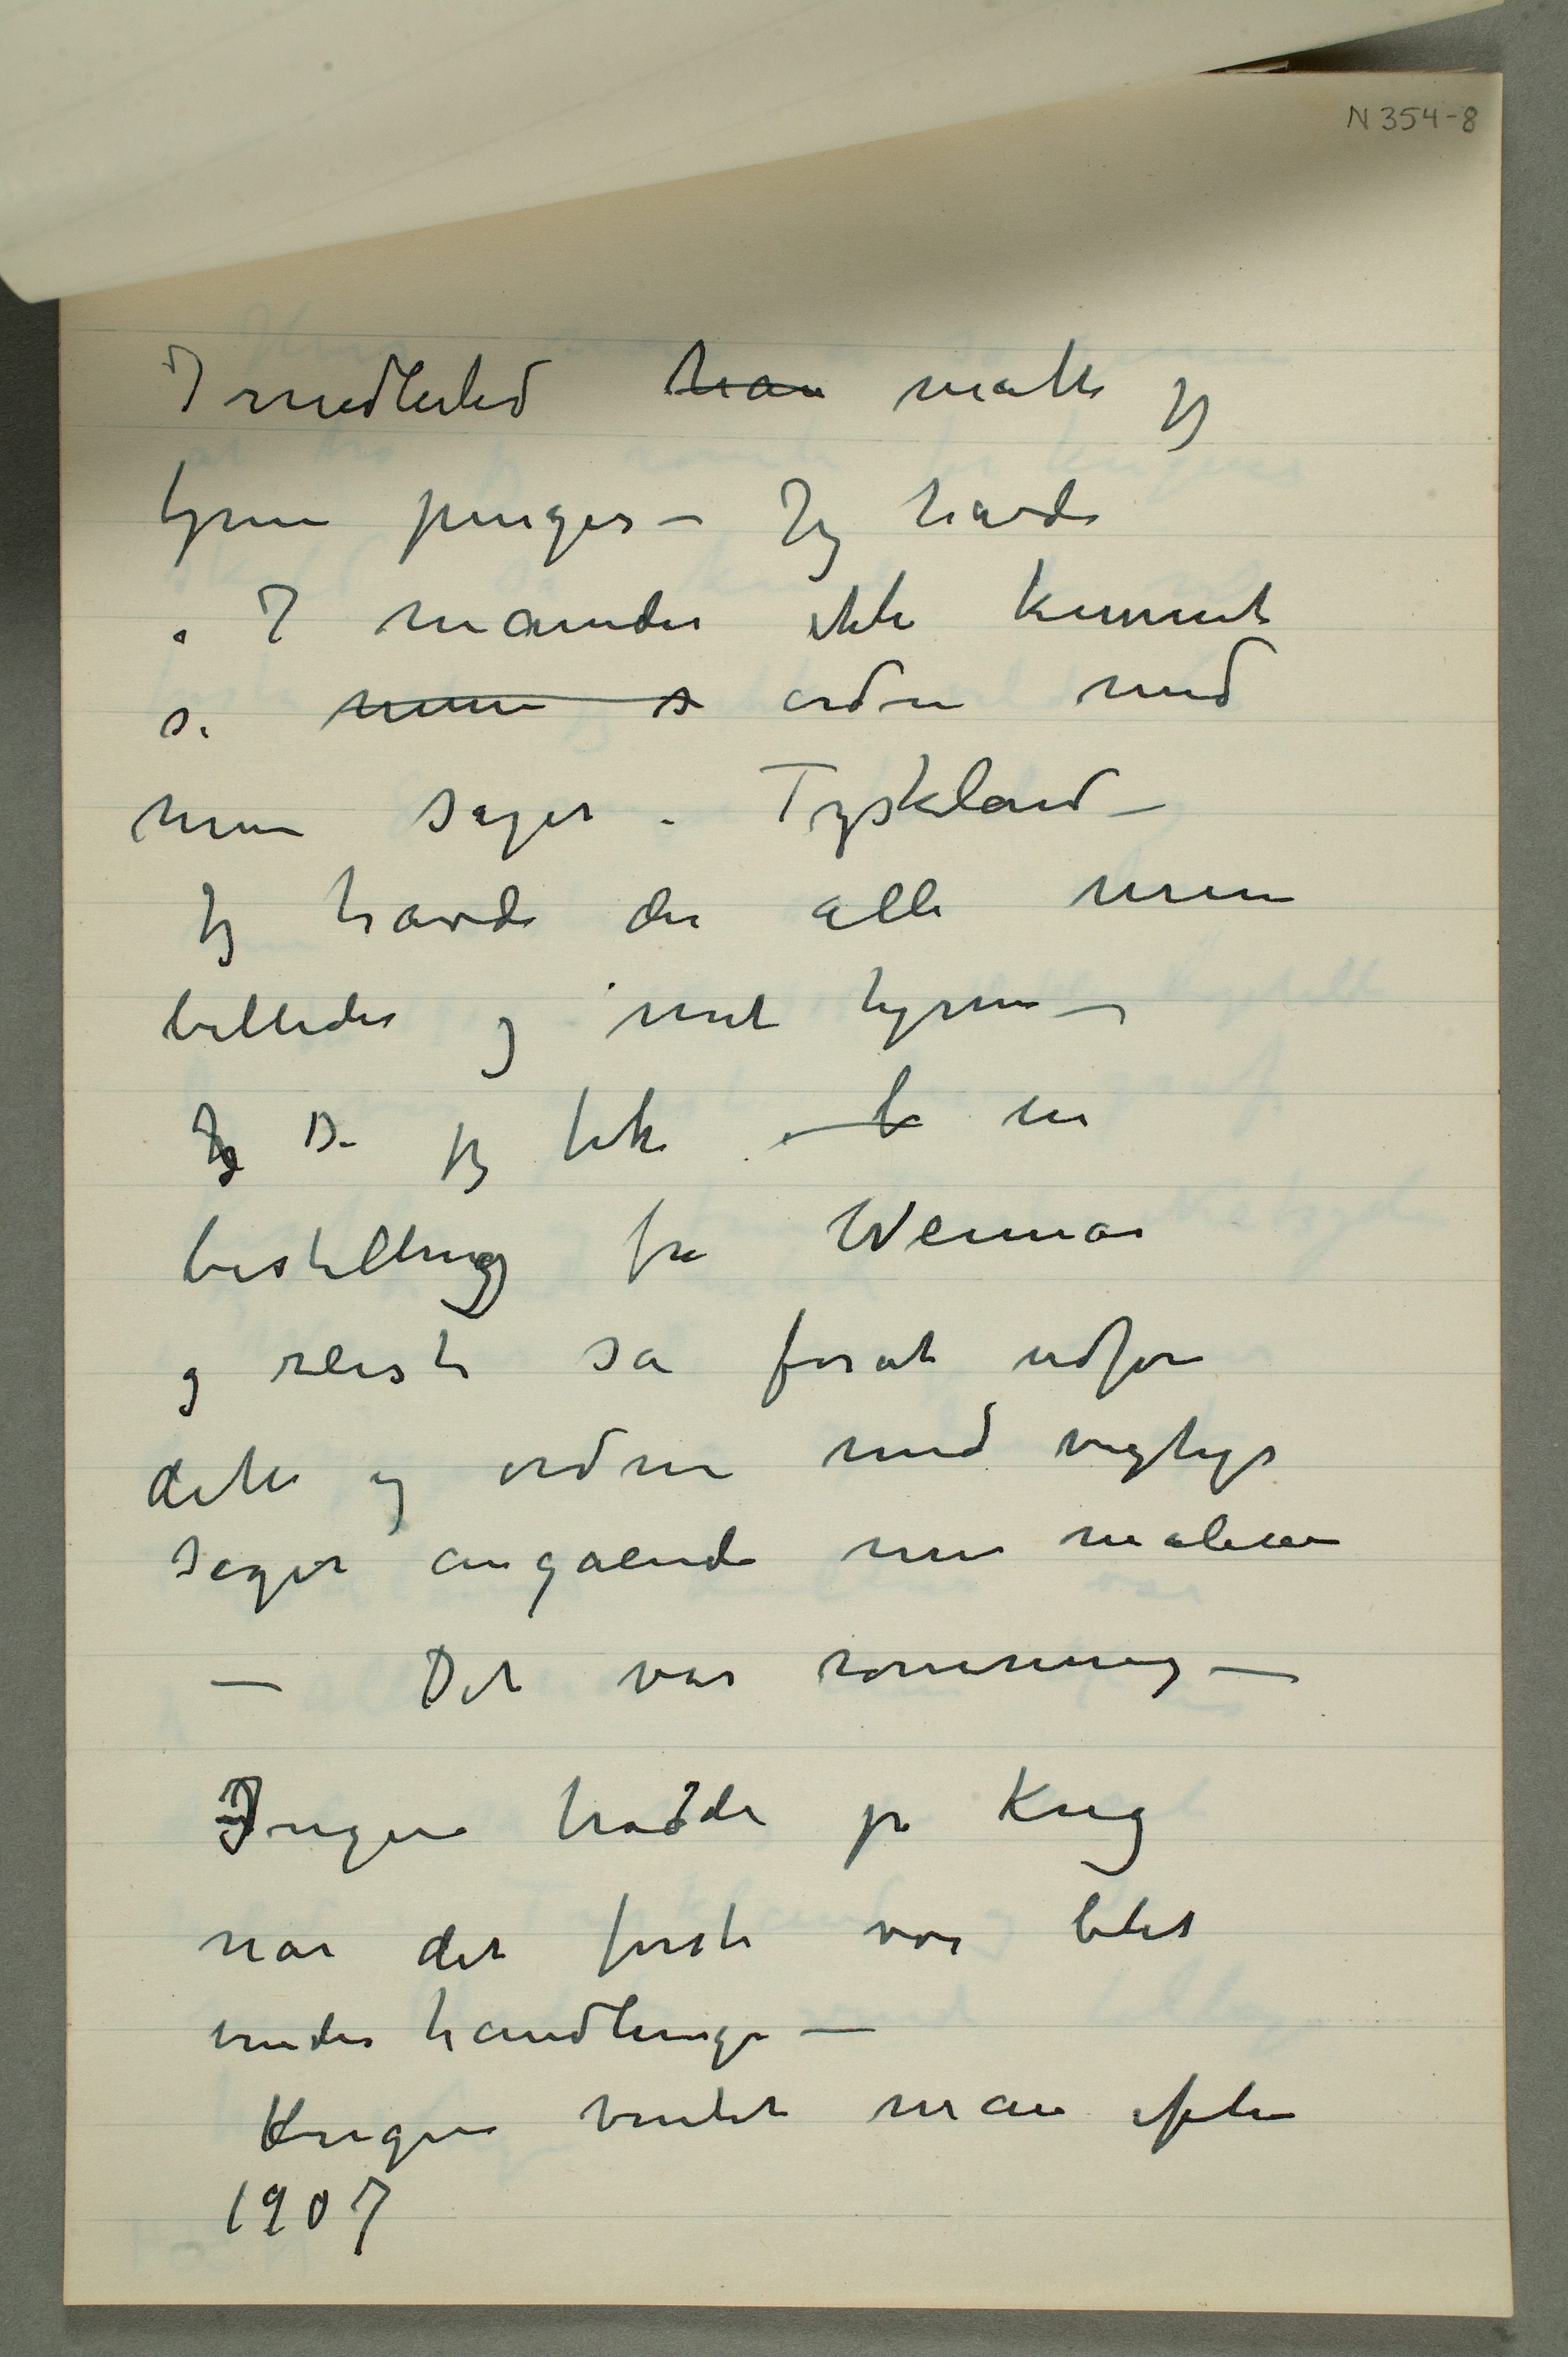 N 354-8
I midlertid han måtte jeg
tjene penger – Jeg havde
i 7 måneder ikke kunnet
se mine s ordne med
mine sager i Tyskland –
Jeg havde der alle mine
billeder og mit hjem –
Jeg Da jeg fik i b en
bestilling fra Weimar
og reiste så forat udføre
dette og ordne med vigtige
sager angående min maleri
– Det var rømning –
Ingen trodde på Krig
når det første var blet
underhandlinger –
Krigen ventet man efter
1907